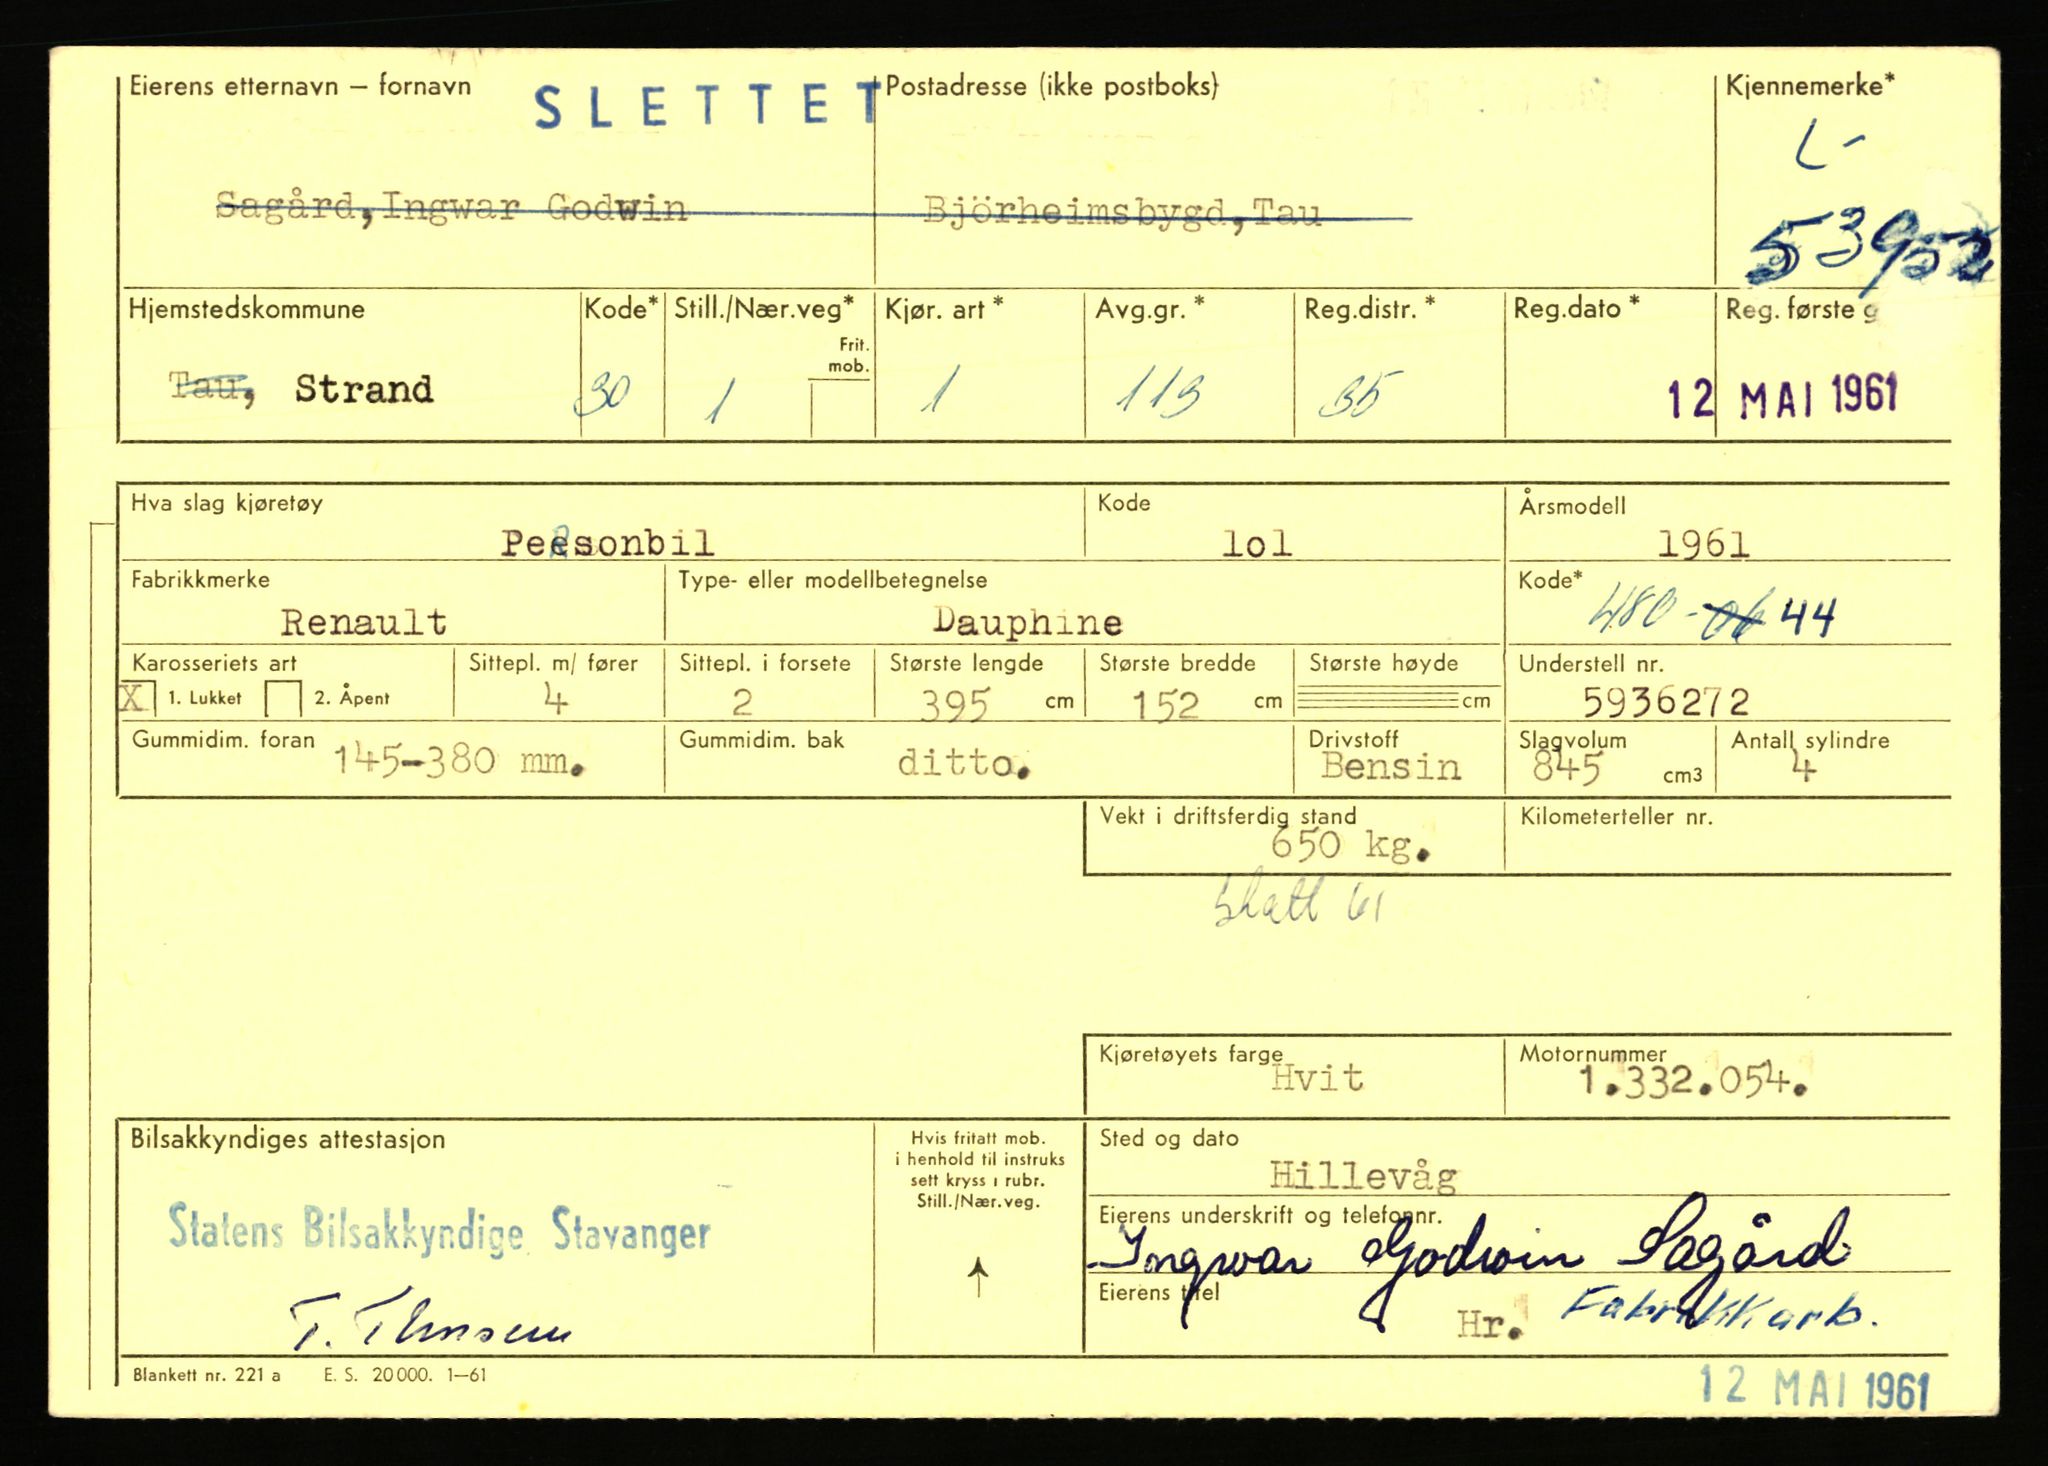 Eierens etternavn – fornavn
SLETTET
Postadresse (ikke postboks)
Kjennemerke*
L-
53952
Sagård, Ingwar Godwin
Björheimsbygd, Tau
Hjemstedskommune
Kode*
Still./Nær.veg*
Frit.
mob.
Kjør. art *
Avg.gr. *
Reg.distr. *
Reg.dato *
Reg. første g
Tau, Strand
30
1
1
113
35
12 MAI 1961
Hva slag kjøretøy
Personbil
Kode
lol
Årsmodell
1961
Fabrikkmerke
Renault
Type- eller modellbetegnelse
Dauphine
Kode*
480-06 44
Karosseriets art
X 1. Lukket
2. Åpent
Sittepl. m/ fører
4
Sittepl. i forsete
2
Største lengde
395 cm
Største bredde
152 cm
Største høyde
cm
Understell nr.
5936272
Gummidim. foran
145-380 mm.
Gummidim. bak
ditto.
Drivstoff
Bensin
Slagvolum
845 cm3
Antall sylindre
4
Vekt i driftsferdig stand
650 kg.
Kilometerteller nr.
61
Kjøretøyets farge
Hvit
Motornummer
1.332.054.
Bilsakkyndiges attestasjon
Statens Bilsakkyndige Stavanger
Hvis fritatt mob.
i henhold til instruks
sett kryss i rubr.
Still./Nær.veg.
Sted og dato
Hillevåg
Eierens underskrift og telefonnr.
Ingwar Godwin Sagård
Eierens titel
Hr. Fabrikkarb.
Blankett nr. 221 a E. S. 20000. 1–61
12 MAI 1961